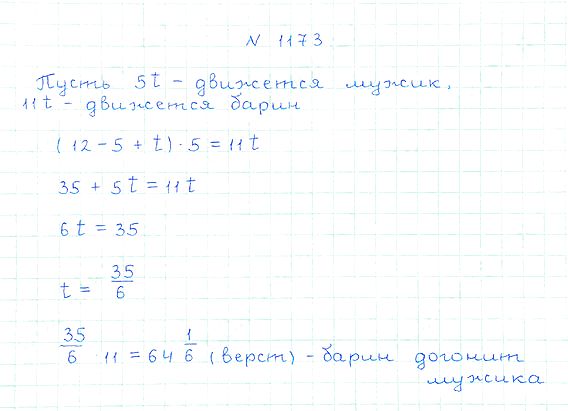 N 1173
Пусть 5t – движется мужик,
11t – движется барин
(12 – 5 + t) · 5 = 11t
35 + 5t = 11t
6t = 35
t = 35/6
35/6 11 = 64 1/6 (верст) – барин догонит
мужика